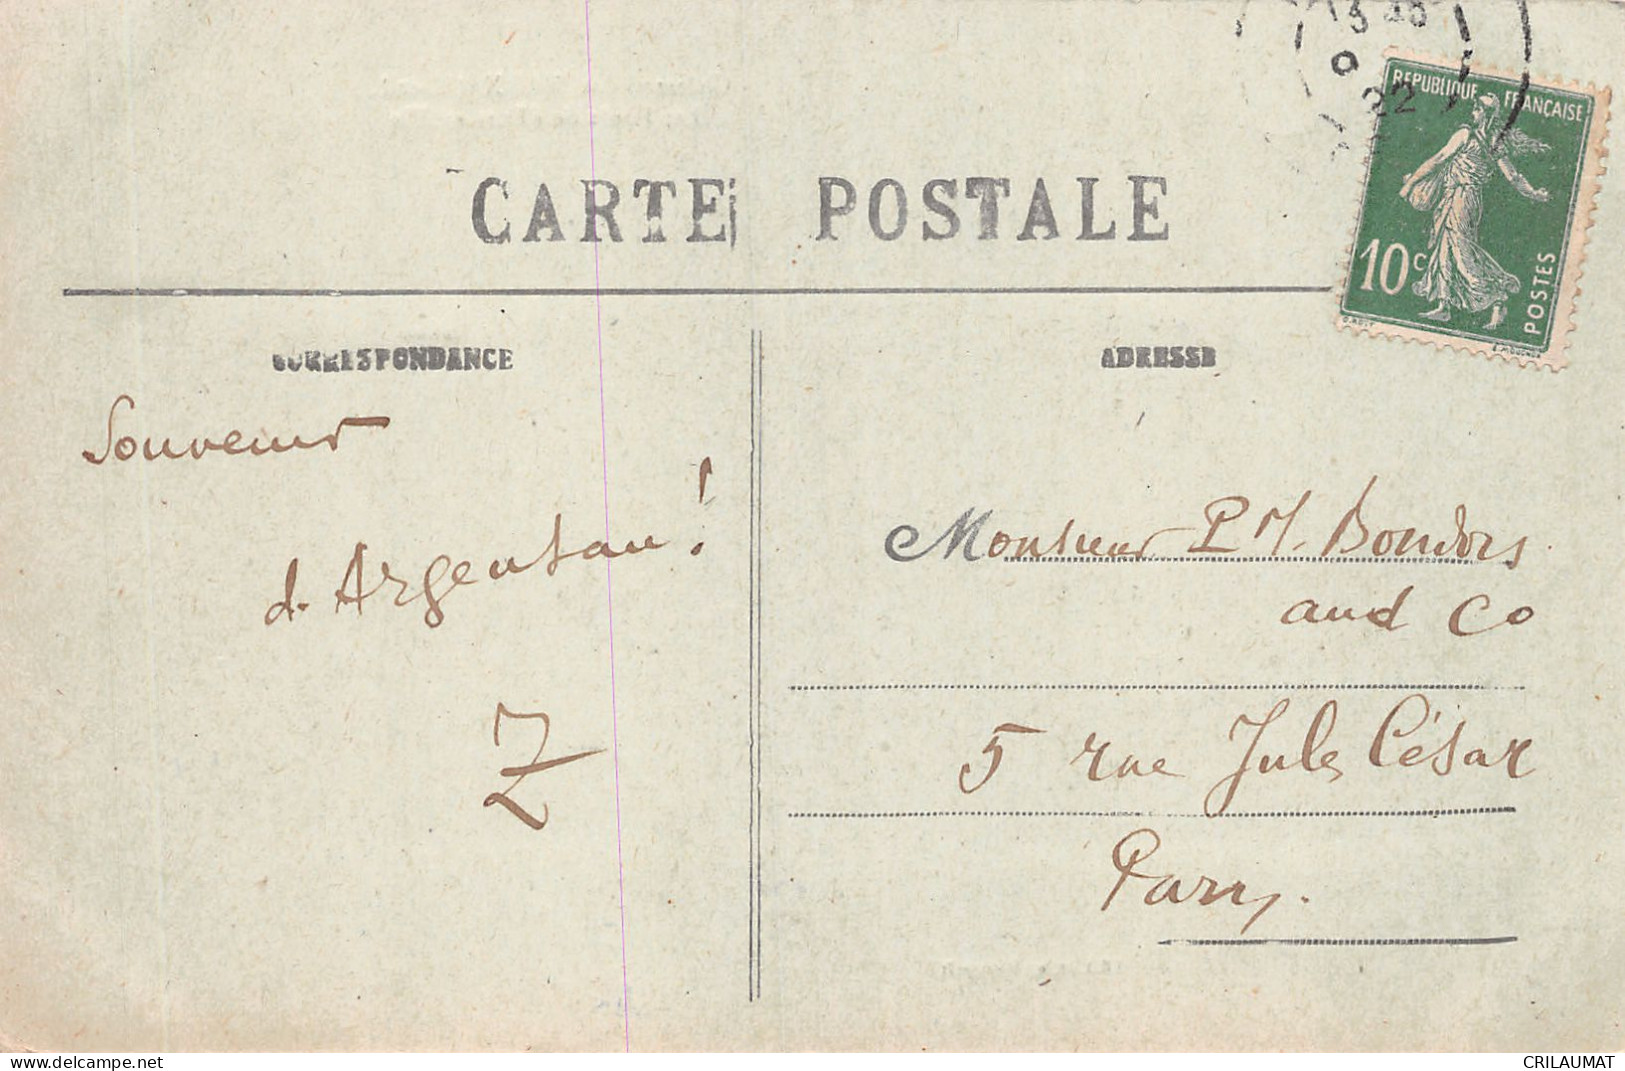 CARTE POSTALE
REPUBLIQUE FRANÇAISE
10c
POSTES
CORRESPONDANCE
ADRESSE
Souvenir
d'Argentan!
Z
Monsieur P M.
and Co
5 rue Jules César
Paris.
www.delcampe.net
CRILAUMAT